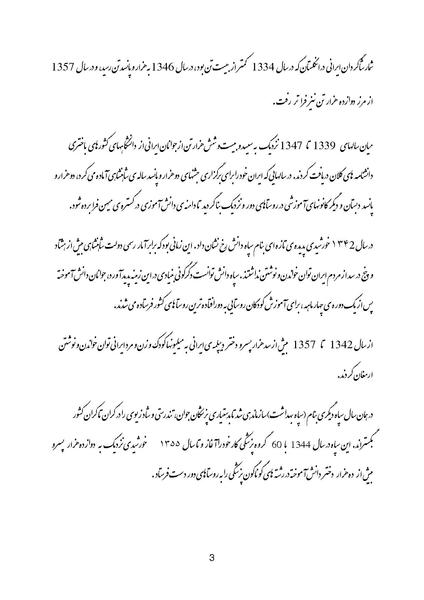 شمار شاگردان ایرانی در انگلستان که در سال 1334 کمتر از بیست تن بود، در سال 1346 به هزار و پانسد تن رسید، و در سال 1357
از مرز دوازده هزار تن نیز فرا تر رفت.
میان سالهای 1339 تا 1347 نزدیک به سیسد و بیست و شش هزار تن از جوانان ایرانی از دانشگاههای کشورهای باختری
دانشنامه های کلان دریافت کردند. در سالهائی که ایران خود را برای برگزاری جشنهای دو هزار و پانسد ساله ی شاهنشاهی آماده می کرد، دو هزار و
پانسد دبستان و دیگر کانونهای آموزشی در روستاهای دور و نزدیک بنا گردید تا دامنه ی دانش آموزی در گستره ی میهن فرا برده شود.
در سال ۱۳۴2 خورشیدی پدیده ی تازه ای بنام سپاه دانش رخ نشان داد. این زمانی بود که برابر آمار رسمی دولت شاهنشاهی بیش از هشتاد
و پنج در سد از مردم ایران توان خواندن و نوشتن نداشتند. سپاه دانش توانست دگرگونی بنیادی در این زمینه پدید آورد، جوانان دانش آموخته
پس از یک دوره ی چهار ماهه، برای آموزش کودکان روستایی به دور افتاده ترین روستاهای کشور فرستاده می شدند.
از سال 1342 تا 1357 بیش از سد هزار پسر و دختر دیپلمه ی ایرانی به میلیونها کودک و زن و مرد ایرانی توان خواندن و نوشتن
ارمغان کردند.
در همان سال سپاه دیگری بنام (سپاه بهداشت) سازماندهی شد تا بدستیاری پزشکان جوان، تندرستی و شادزیوی را در کران تا کران کشور
بگستراند. این سپاه در سال 1344 با 60 گروه پزشکی کار خود را آغاز و تا سال ۱۳۵۵ خورشیدی نزدیک به دوازده هزار پسر و
بیش از ده هزار دختر دانش آموخته در رشته های گوناگون پزشکی را به روستاهای دور دست فرستاد.
3